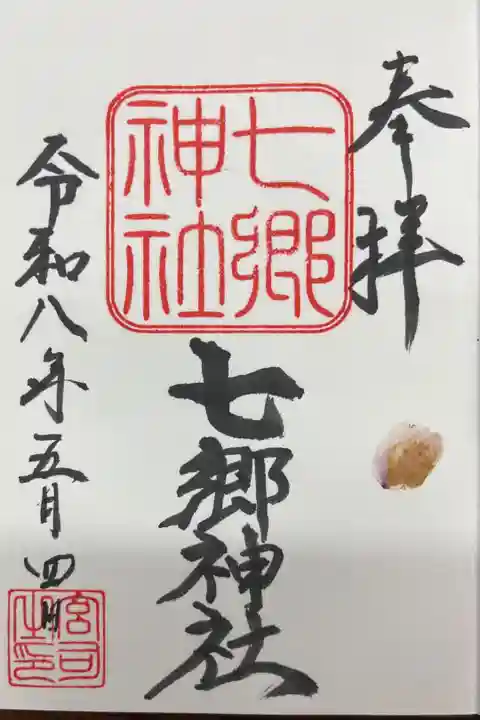 奉拝
七郷
神社
七郷神社
令和八年五月四日
宮司
之印